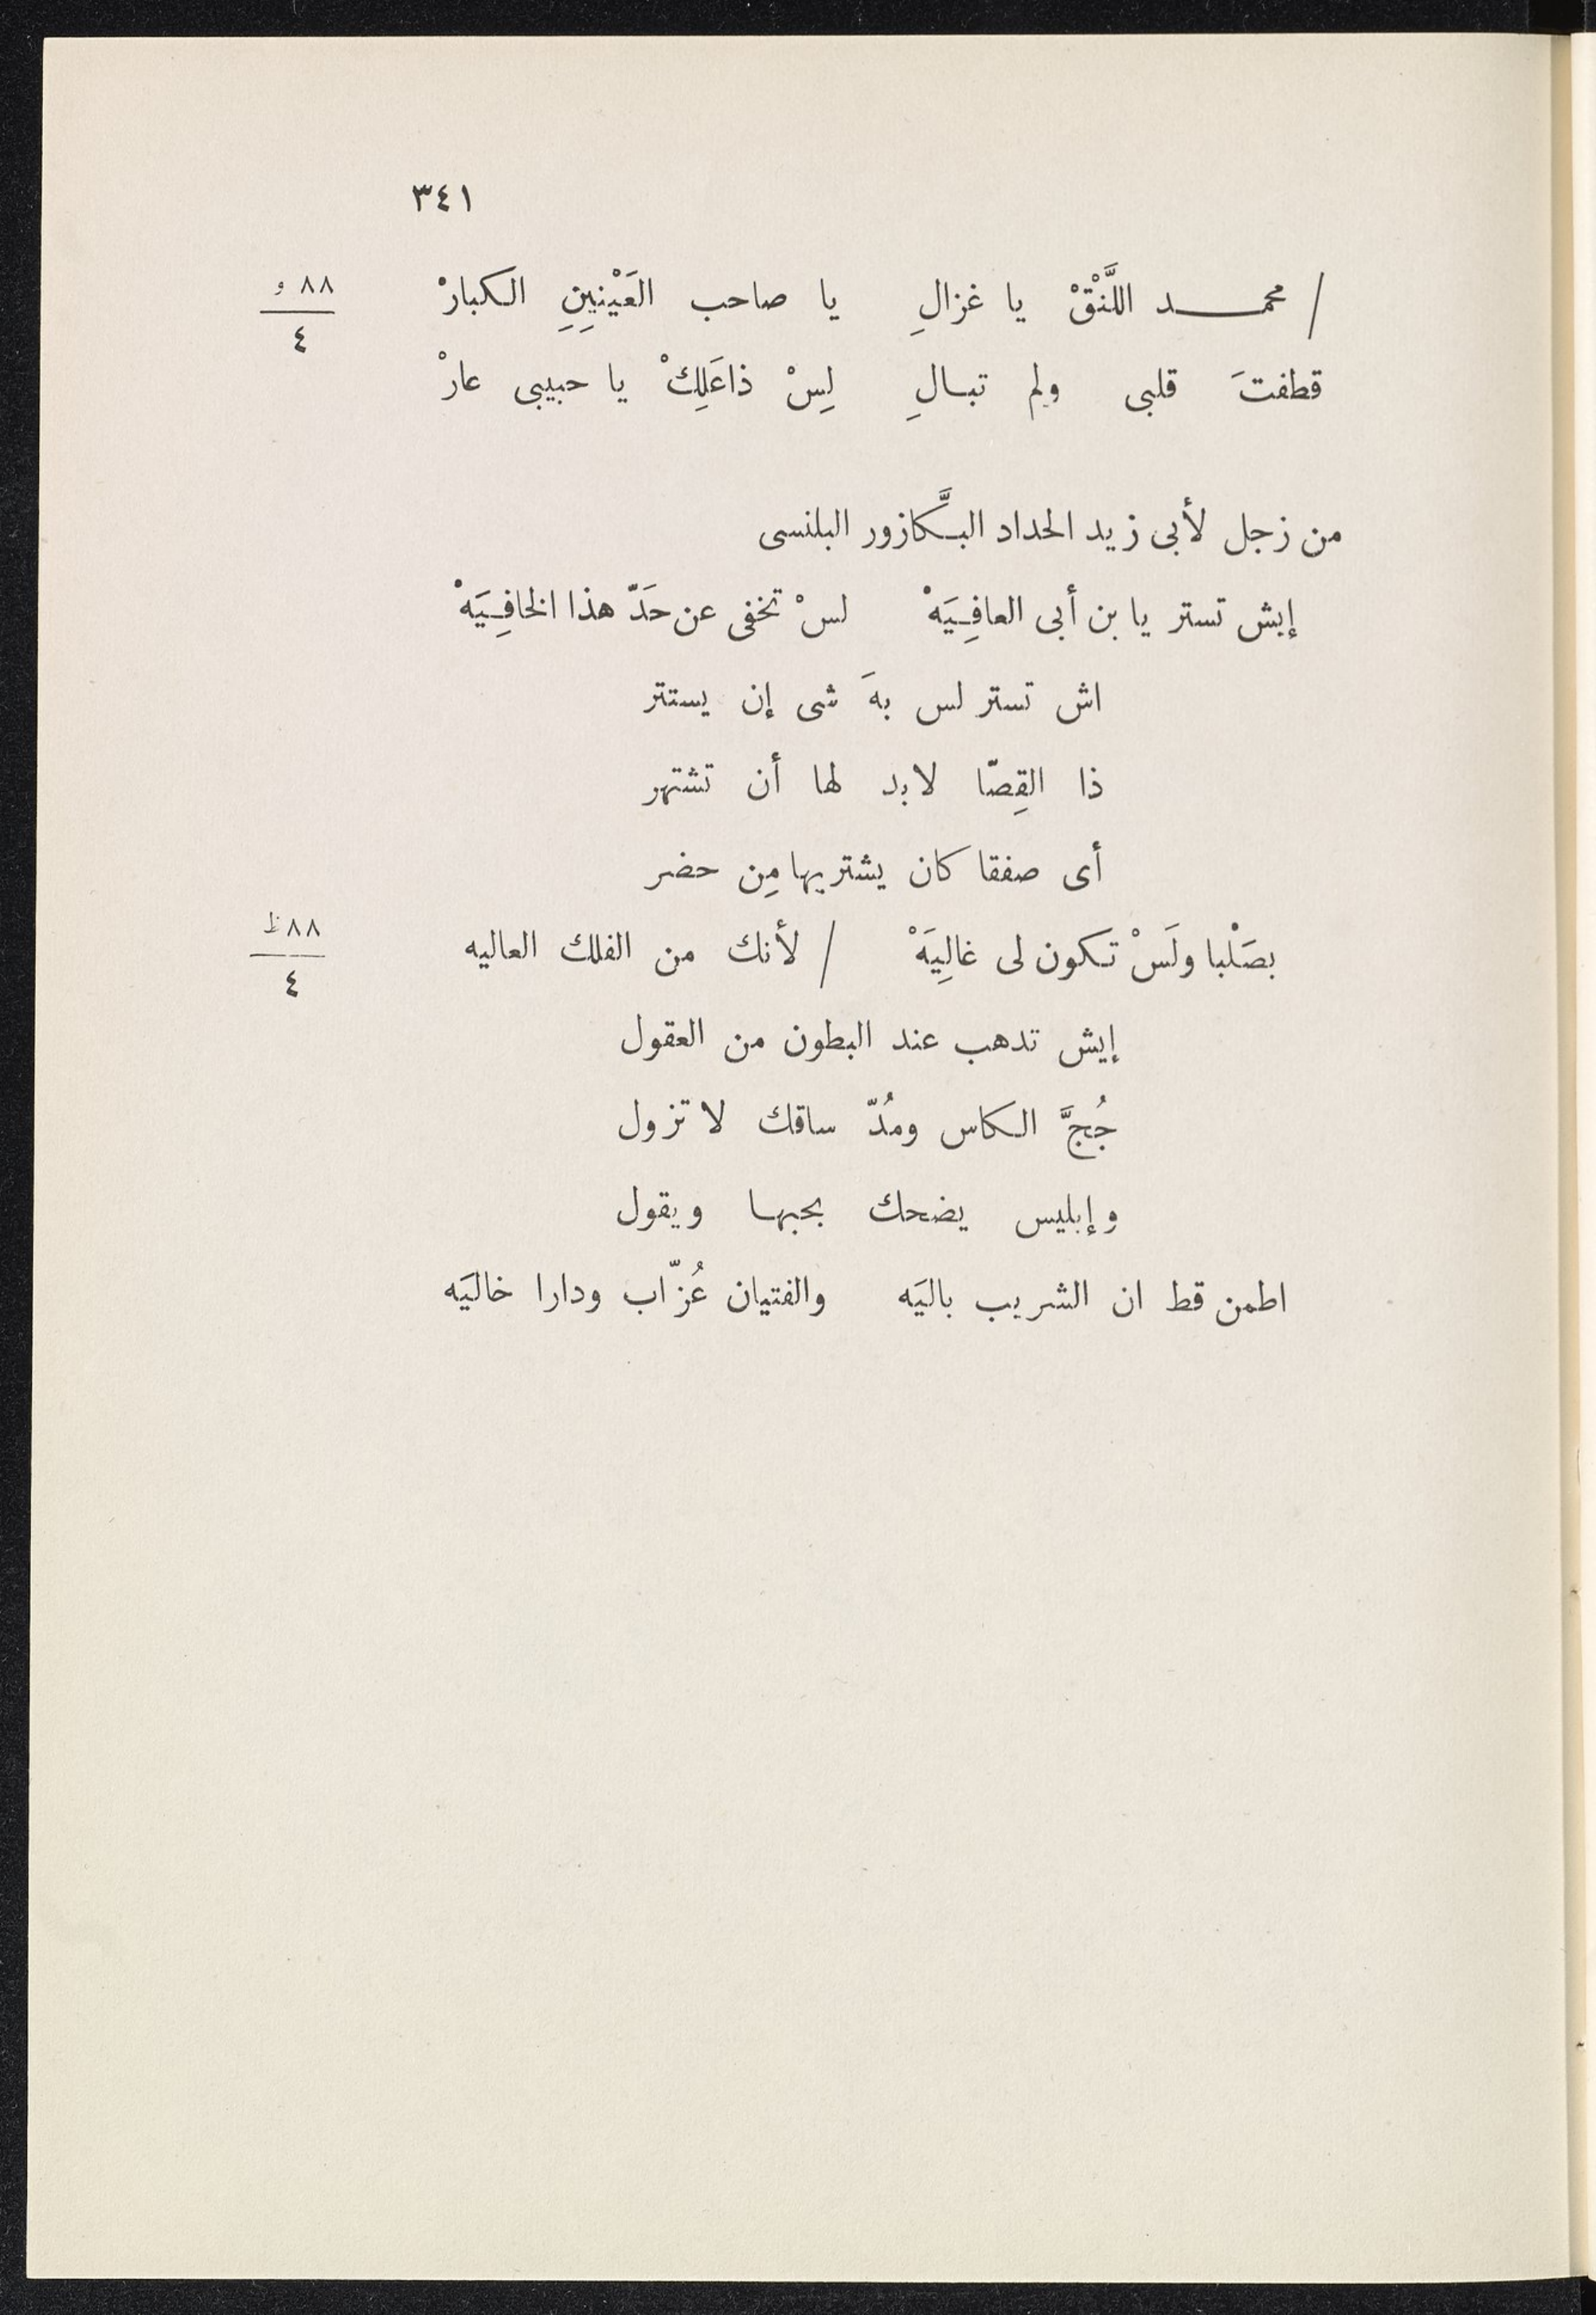 ٣٤١
/ محمـــد اللَّنْقْ يا غزالِ يا صاحب العَيْنِينِ الكبارْ ٨٨ و / ٤
قطفتَ قلبى ولم تبالِ لِسْ ذا عَلِكْ يا حبيبى عارْ
من زجل لأبى زيد الحداد البَّكازور البلنسى
إيش تستر يا بن أبى العافِيَهْ لسْ تخفى عن حَدّ هذا الخافِيَهْ
اش تستر لس بهَ شى إن يستتر
ذا القِصّا لابد لها أن تشتهر
أى صفقا كان يشتريها مِن حضر
بصَلْبا ولَسْ تكون لى غالِيَهْ / لأنك من الفلك العاليه ٨٨ ظ / ٤
إيش تدهب عند البطون من العقول
جُجَّ الكاس ومُدّ ساقك لا تزول
وإبليس يضحك بجبها ويقول
اطمن قط ان الشريب باليَه والفتيان عُزّاب ودارا خاليَه